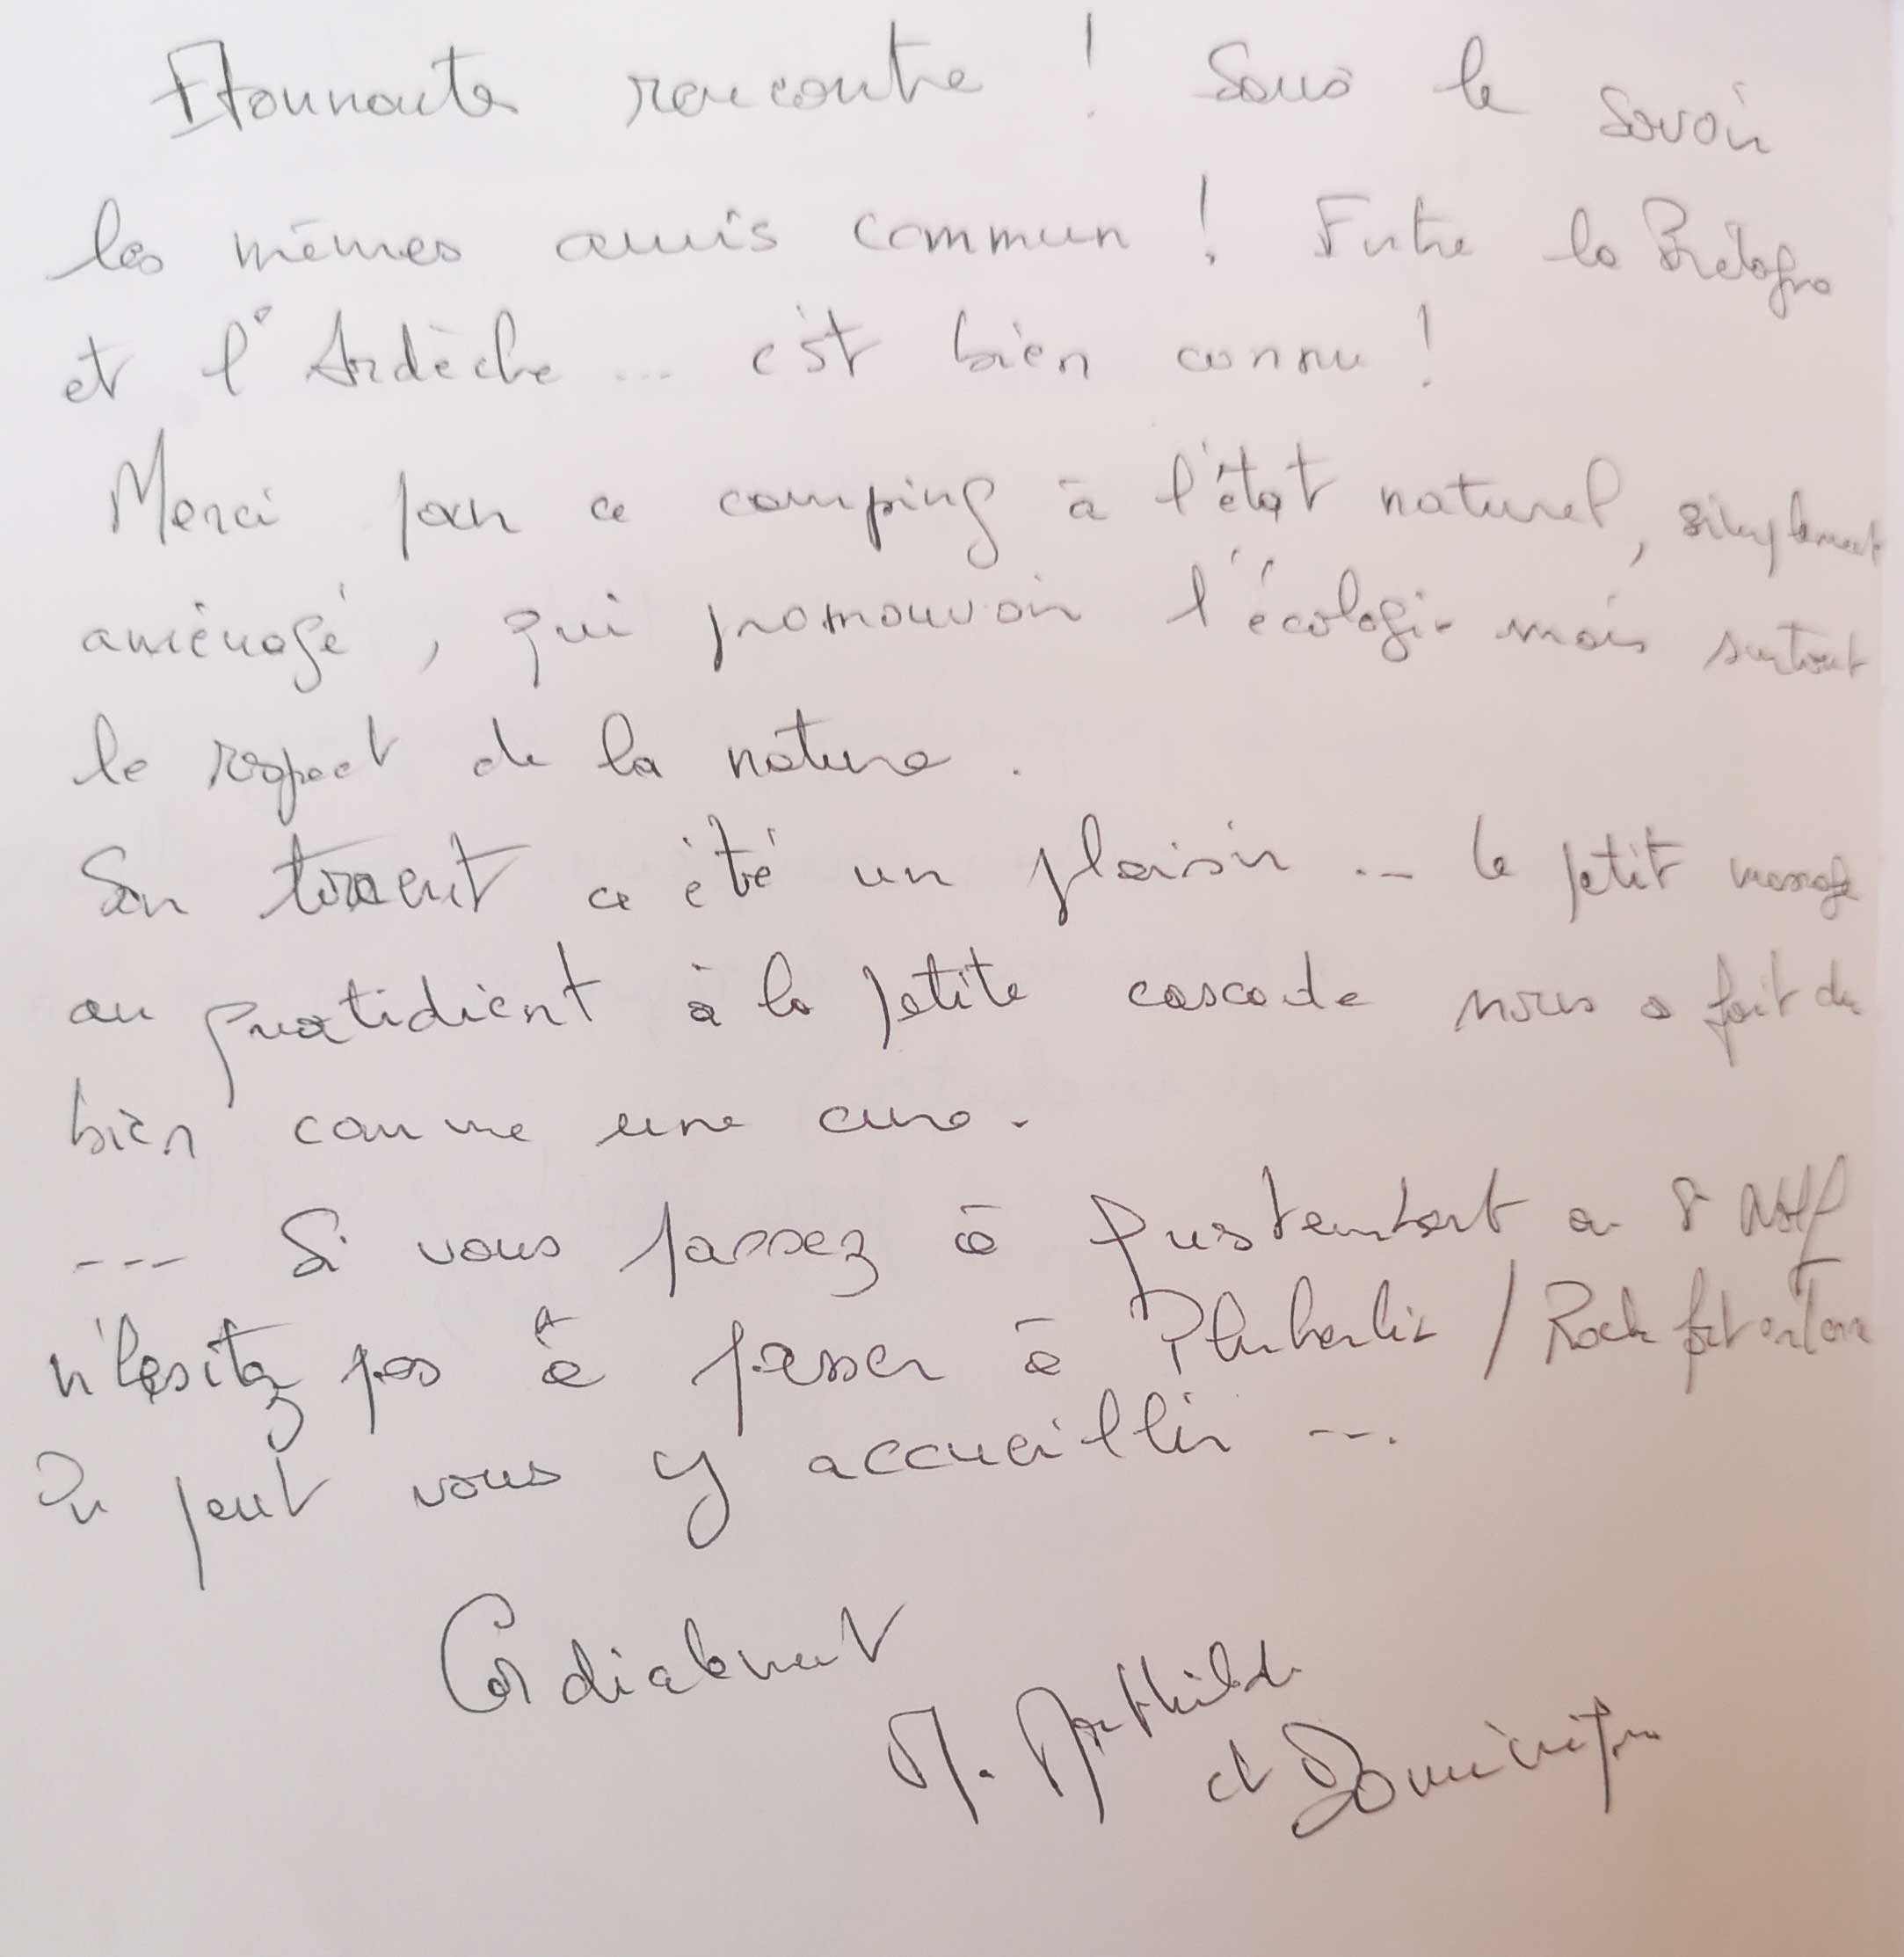 Etonnante rencontre ! Sans le savoir
les mêmes amis commun ! Entre la Bretagne
et l'Ardèche ... c'est bien connu !
Merci pour ce camping à l'état naturel, simplement
aménagé, qui promouvoir l'écologie mais surtout
le respect de la nature.
Son torrent a été un plaisir ... le petit massage
au quotidient à la petite cascade nous a fait du
bien comme une cure.
--- Si vous passez à Questembert ou St Nolf
n'hésitez pas à passer à Pluherlin / Rochefort en Terre
On peut vous y accueillir ---.
Cordialement
M. Mathilde
et Dominique